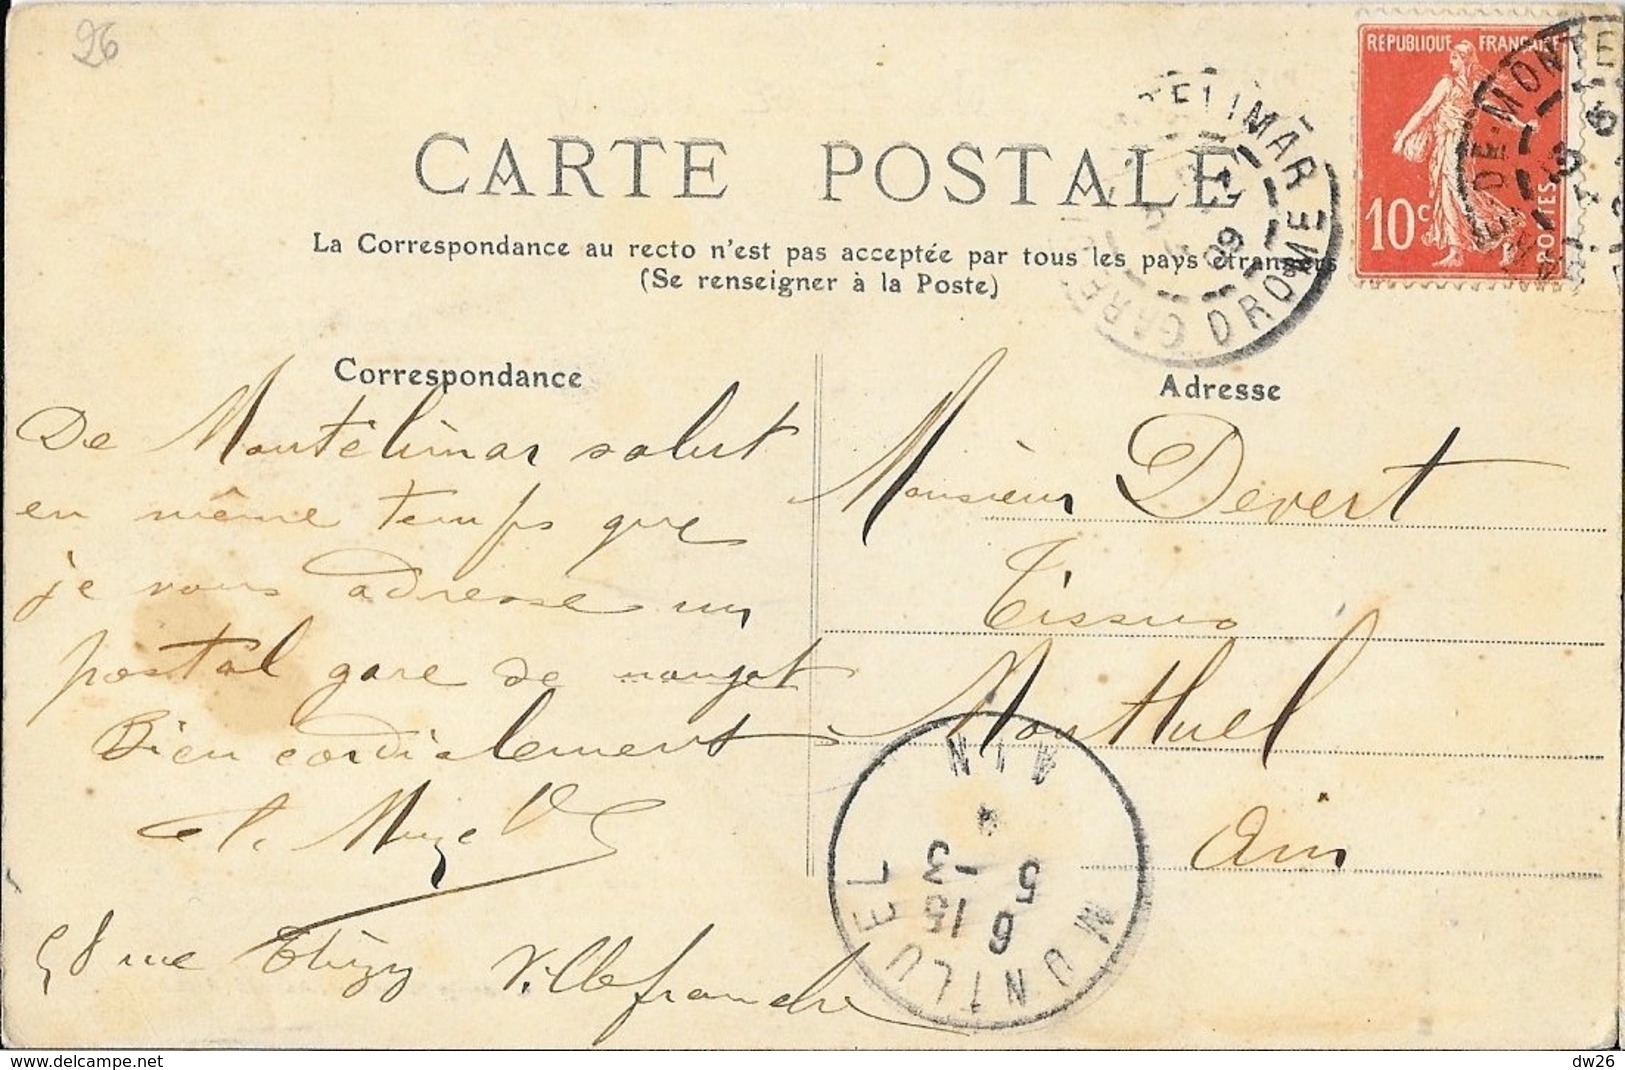 26
RÉPUBLIQUE FRANÇAISE
10c
POSTES
GARE DE MONTE
GARE DE MONTELIMAR
09
DROME
CARTE POSTALE
La Correspondance au recto n'est pas acceptée par tous les pays étrangers
(Se renseigner à la Poste)
Correspondance
De Montélimar salut
en même temps que
je vous adresse un
postal gare de nougat
Bien cordialement
58 rue Thizy Villefranche
Adresse
Monsieur Devert
Tissus
Montluel
Ain
MONTLUEL
AIN
6 15
5 -3
dw26